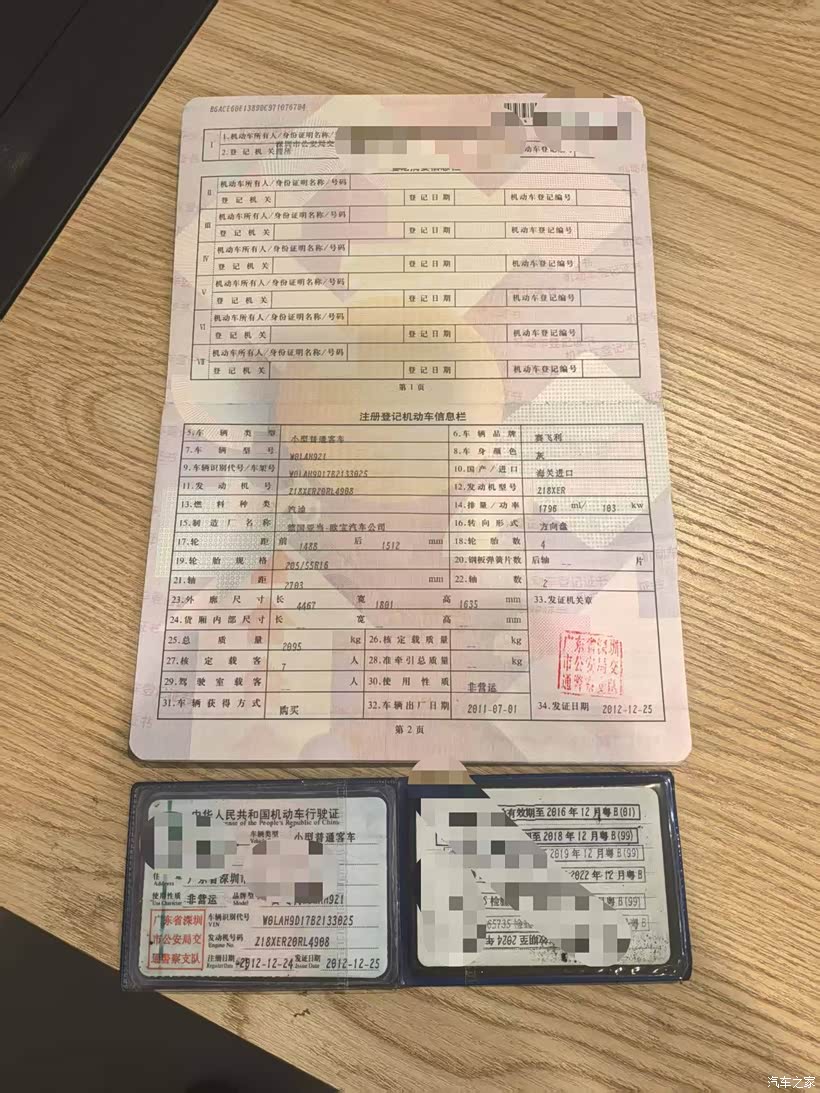 1.机动车所有人/身份证明名称/
2.登记机关
机动车登
I
II 机动车所有人/身份证明名称/号码
登记机关 登记日期 机动车登记编号
III 机动车所有人/身份证明名称/号码
登记机关 登记日期 机动车登记编号
IV 机动车所有人/身份证明名称/号码
登记机关 登记日期 机动车登记编号
V 机动车所有人/身份证明名称/号码
登记机关 登记日期 机动车登记编号
VI 机动车所有人/身份证明名称/号码
登记机关 登记日期 机动车登记编号
VII 机动车所有人/身份证明名称/号码
登记机关 登记日期 机动车登记编号
第1页
注册登记机动车信息栏
5.车辆类型 小型普通客车 6.车辆品牌 赛飞利
7.车辆型号 W0LAH921 8.车身颜色 灰
9.车辆识别代号/车架号 W0LAH9D17B2133025 10.国产/进口 海关进口
11.发动机号 Z18XER20RL4908 12.发动机型号 Z18XER
13.燃料种类 汽油 14.排量/功率 1796 ml/ 103 kw
15.制造厂名称 德国亚当-欧宝汽车公司 16.转向形式 方向盘
17.轮距 前 1488 后 1512 mm 18.轮胎数 4
19.轮胎规格 205/55R16 20.钢板弹簧片数 后轴 -- 片
21.轴距 2703 mm 22.轴数 2
23.外廓尺寸 长 4467 宽 1801 高 1635 mm 33.发证机关章
24.货厢内部尺寸 长 -- 宽 -- 高 -- mm
25.总质量 2095 kg 26.核定载质量 -- kg
27.核定载客 7 人 28.准牵引总质量 -- kg
29.驾驶室载客 -- 人 30.使用性质 非营运
31.车辆获得方式 购买 32.车辆出厂日期 2011-07-01 34.发证日期 2012-12-25
广东省深圳
市公安局交
通警察支队
第2页
中华人民共和国机动车行驶证
of the People's Republic of China
车辆类型 小型普通客车
住
Address 广东省深圳
使用性质 非营运 品牌型
Use Character Model AH921
广东省深圳
市公安局交
通警察支队
车辆识别代号 W0LAH9D17B2133025
VIN
发动机号码 Z18XER20RL4908
Engine No.
注册日期 2012-12-24 发证日期 2012-12-25
Register Date Issue Date
有效期至2016年12月粤B(01)
至2018年12月粤B(99)
2019年12月粤B(99)
2022年12月粤B
检 粤B(99)
65735 检
效期至 2024年
汽车之家